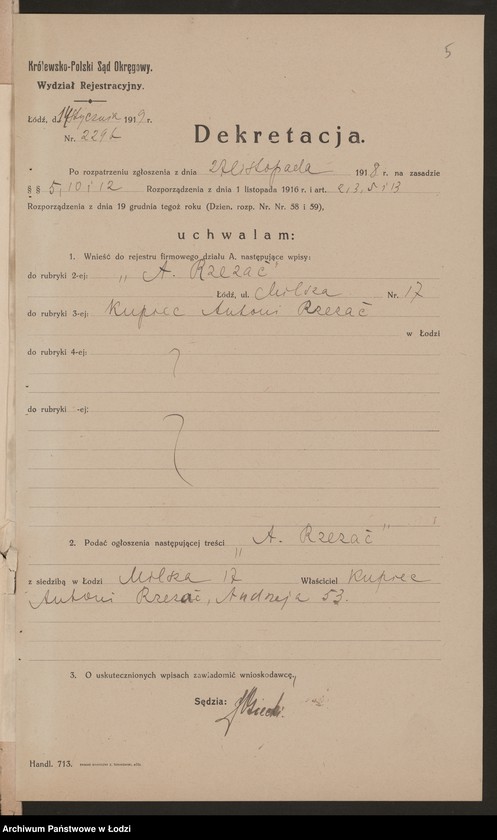 5
Królewsko-Polski Sąd Okręgowy.
Wydział Rejestracyjny.
Łódź, d. 14 stycznia 1919 r.
Nr. 2292
Dekretacja.
Po rozpatrzeniu zgłoszenia z dnia 27 listopada 1918 r. na zasadzie
§ § 5, 10 i 12 Rozporządzenia z dnia 1 listopada 1916 r. i art. 2, 3, 5 i 13
Rozporządzenia z dnia 19 grudnia tegoż roku (Dzien. rozp. Nr. Nr. 58 i 59),
uchwalam:
1. Wnieść do rejestru firmowego działu A, następujące wpisy:
do rubryki 2-ej: „A. Rzezač"
Łódź, ul. Milsza Nr. 17
do rubryki 3-ej: Kupiec Antoni Rzezač
w Łodzi
do rubryki 4-ej:
do rubryki -ej:
2. Podać ogłoszenia następującej treści „A. Rzezač"
z siedzibą w Łodzi Milsza 17 Właściciel Kupiec
Antoni Rzezač, Andrzeja 53.
3. O uskutecznionych wpisach zawiadomić wnioskodawcę,
Sędzia:
Handl. 713.
Archiwum Państwowe w Łodzi